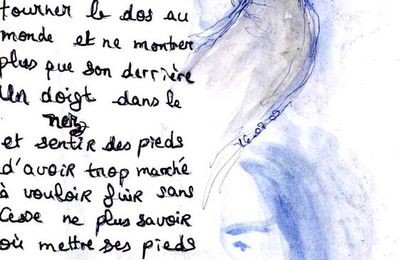 tourner le dos au
monde et ne montrer
plus que son derrière
Un doigt dans le
nez
et sentir des pieds
d'avoir trop marché
à vouloir fuir sans
cesse ne plus savoir
où mettre ses pieds
16-07-09